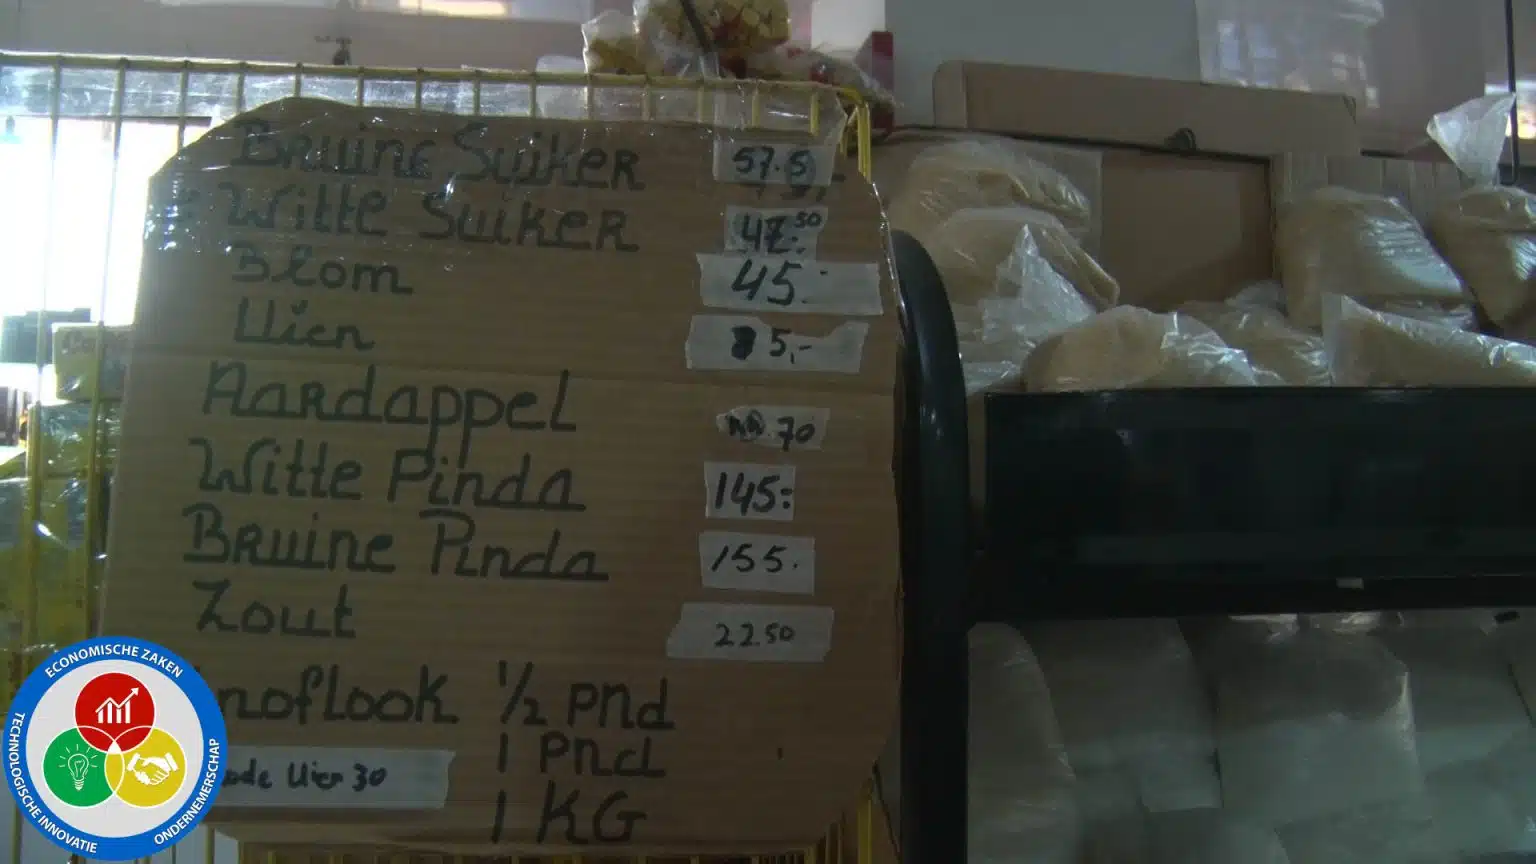 Bruine Suiker 57.5
Witte Suiker 47.50
Blom 45.-
Uien 5,-
Aardappel 70
Witte Pinda 145:
Bruine Pinda 155.
Zout 22.50
noflook 1/2 PNd
1 PNd
1 KG
ode Uien 30
ECONOMISCHE ZAKEN
TECHNOLOGISCHE INNOVATIE
ONDERNEMERSCHAP